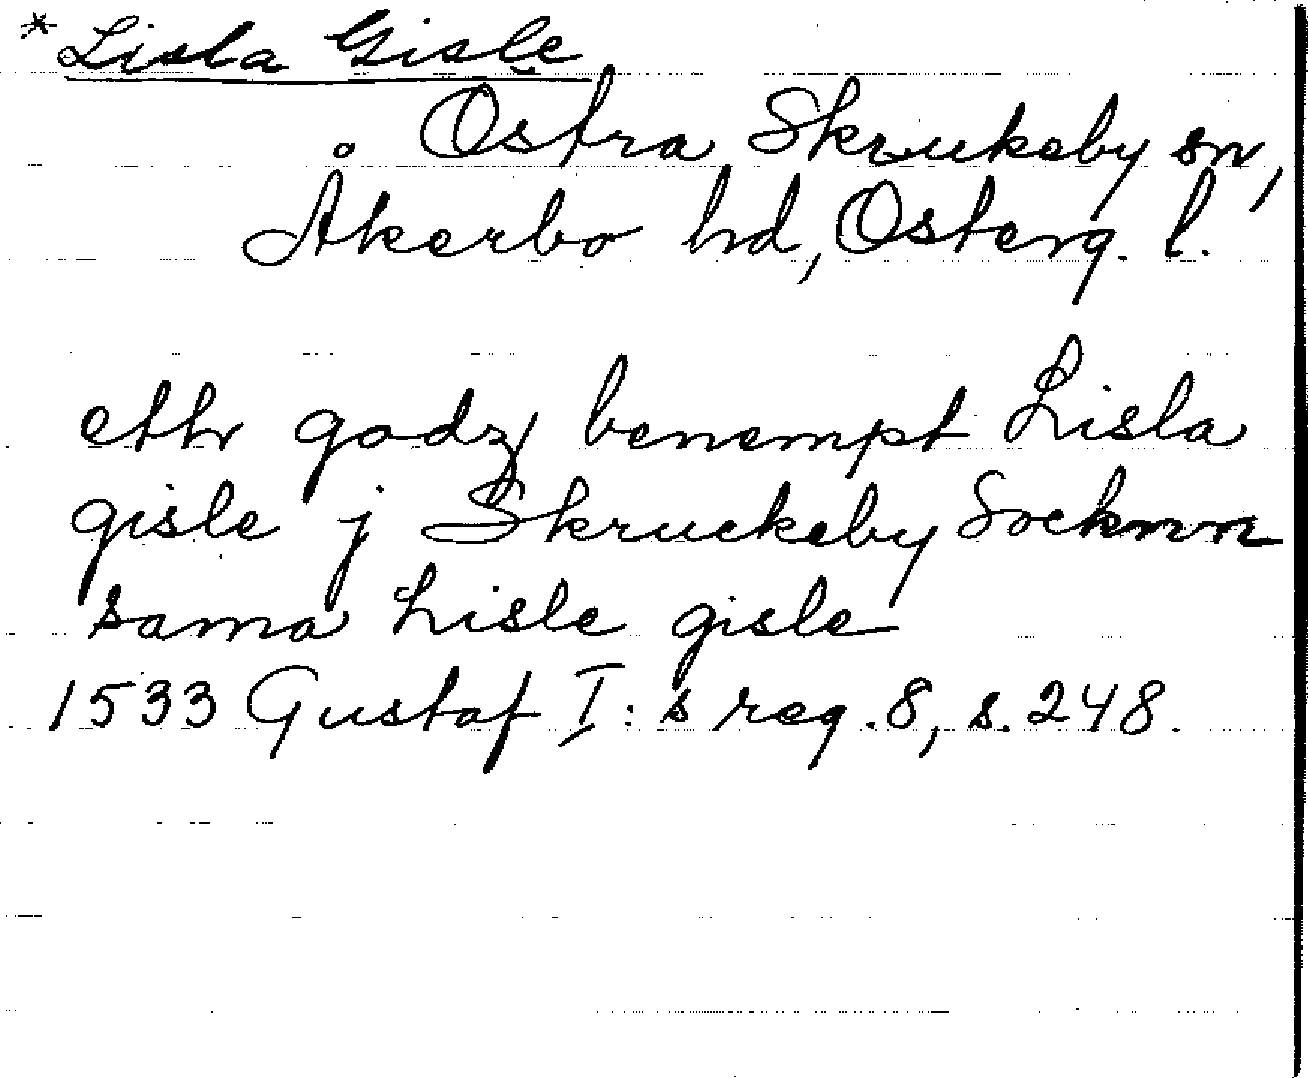 *Lisla Gisle
Ostra Skrukeby sn,
Åkerbo hd, Osterg. l.
etthr godz benempt Lisla
gisle j Skruckeby Socknn
sama Lisle gisle
1533 Gustaf I:s reg. 8, s. 248.